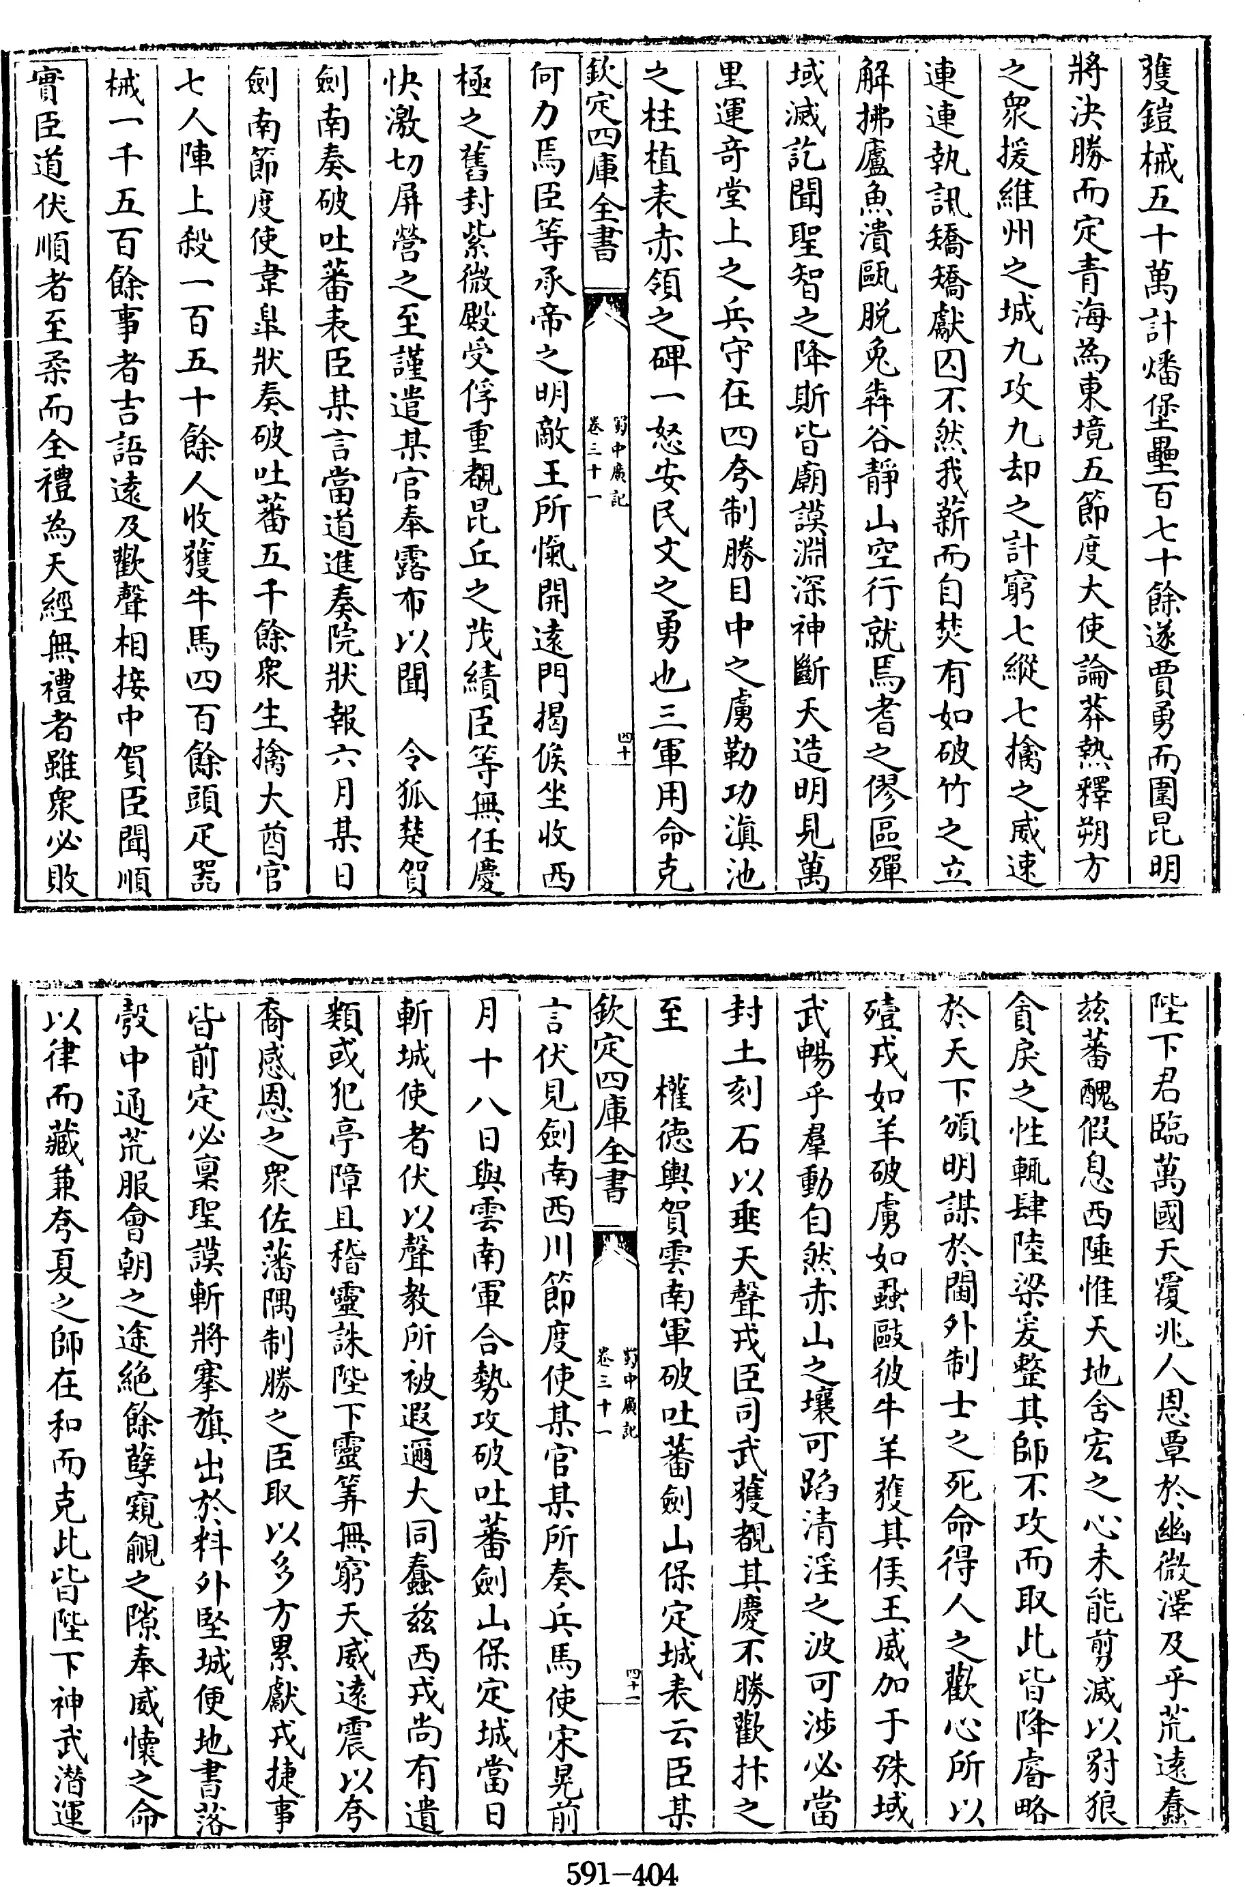 獲鎧械五十萬計燔堡壘百七十餘遂賈勇而圍昆明
將決勝而定青海為東境五節度大使論莽熱釋朔方
之衆援維州之城九攻九却之計窮七縱七擒之威速
連連執訊矯矯獻囚不然我薪而自焚有如破竹之立
解拂廬魚潰甌脱兔犇谷靜山空行就焉耆之僇區殫
域滅訖聞聖智之降斯皆廟謨淵深神斷天造明見萬
里運竒堂上之兵守在四夸制勝目中之虜勒功滇池
之柱植表赤領之碑一怒安民文之勇也三軍用命克
欽定四庫全書
蜀中廣記
卷三十一
四十
何力焉臣等承帝之明敵王所愾開遠門揭候坐收西
極之舊封紫微殿受俘重覩昆丘之茂績臣等無任慶
快激切屏營之至謹遣某官奉露布以聞　令狐楚賀
劍南奏破吐蕃表臣某言當道進奏院狀報六月某日
劍南節度使韋臯狀奏破吐蕃五千餘衆生擒大酋官
七人陣上殺一百五十餘人收獲牛馬四百餘頭疋器
械一千五百餘事者吉語遠及歡聲相接中賀臣聞順
實臣道伏順者至柔而全禮為天經無禮者雖衆必敗
陛下君臨萬國天覆兆人恩覃於幽微澤及乎荒遠蠢
兹蕃醜假息西陲惟天地含宏之心未能剪滅以豺狼
貪戾之性輒肆陸梁爰整其師不攻而取此皆降睿略
於天下頒明謀於閫外制士之死命得人之歡心所以
殪戎如羊破虜如蝨毆彼牛羊獲其侯王威加于殊域
武暢乎羣動自然赤山之壤可蹈清淫之波可涉必當
封土刻石以垂天聲戎臣司武獲覩其慶不勝歡抃之
至　權徳輿賀雲南軍破吐蕃劍山保定城表云臣某
欽定四庫全書
蜀中廣記
卷三十一
四十一
言伏見劍南西川節度使某官某所奏兵馬使宋晃前
月十八日與雲南軍合勢攻破吐蕃劍山保定城當日
斬城使者伏以聲教所被遐邇大同蠢兹西戎尚有遺
類或犯亭障且稽靈誅陛下靈筭無窮天威遠震以夸
裔感恩之衆佐藩隅制勝之臣取以多方累獻戎捷事
皆前定必禀聖謨斬將搴旗出於料外堅城便地書落
彀中通荒服會朝之途絶餘孽窺覦之隙奉威懐之命
以律而藏兼夸夏之師在和而克此皆陛下神武潜運
591-404